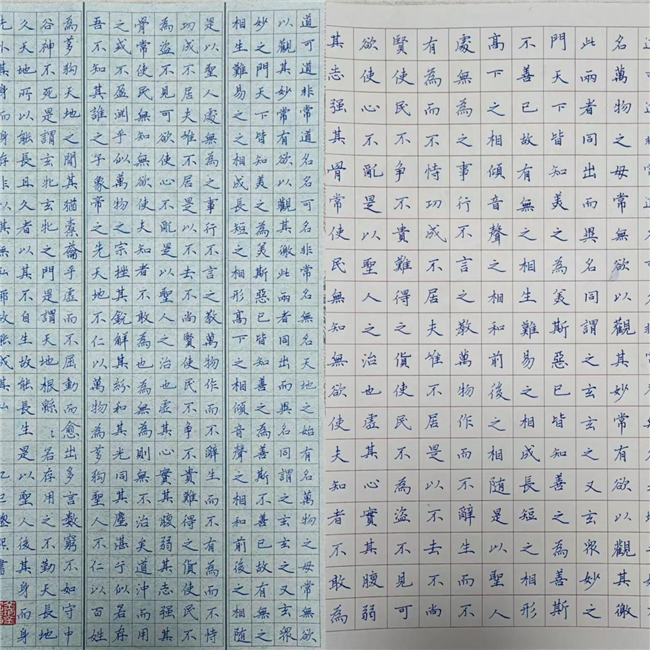 道可道非常道名可名非常名無名天地之始有名萬物之母常無欲
以觀其妙常有欲以觀其徼此兩者同出而異名同謂之玄玄之又玄衆
妙之門天下皆知美之為美斯惡已皆知善之為善斯不善已故有無之
相生難易之相成長短之相形高下之相傾音聲之相和前後之相隨
是以聖人處無為之事行不言之教萬物作而不辭生而不有為而不恃
功成不居夫唯不居是以不去不尚賢使民不爭不貴難得之貨使民不
為盜不見可欲使心不亂是以聖人之治也虛其心實其腹弱其志强其
骨常使民無知無欲使夫知者不敢為也為無為則無不治矣道沖而用
之或不盈淵乎似萬物之宗挫其銳解其紛和其光同其塵湛兮似若存
吾不知其誰之子象帝之先天地不仁以萬物為芻狗聖人不仁以百姓
為芻狗天地之間其猶橐籥乎虛而不屈動而愈出多言數窮不如守中
谷神不死是謂玄牝玄牝之門是謂天地根緜緜若存用之不勤天長地
久天地所以能長且久者以其不自生故能長生是以聖人後其身而身
先外其身而身存非以其無私邪故能成其私 乙巳 書
名萬物之母常無欲以觀其妙常有欲以觀其徼
此兩者同出而異名同謂之玄玄之又玄衆妙之
門天下皆知美之為美斯惡之已皆知善之為善斯
不善已故有無之相生難易之相成長短之相形
高下之相傾音聲之相和前後之相隨是以聖人
處無為之事行不言之教萬物作而不辭生而不
有為而不恃功成不居夫唯不居是以不去不尚
賢使民不爭不貴難得之貨使民不為盜不見可
欲使心不亂是以聖人之治也虛其心實其腹弱
其志强其骨常使民無知無欲使夫知者不敢為